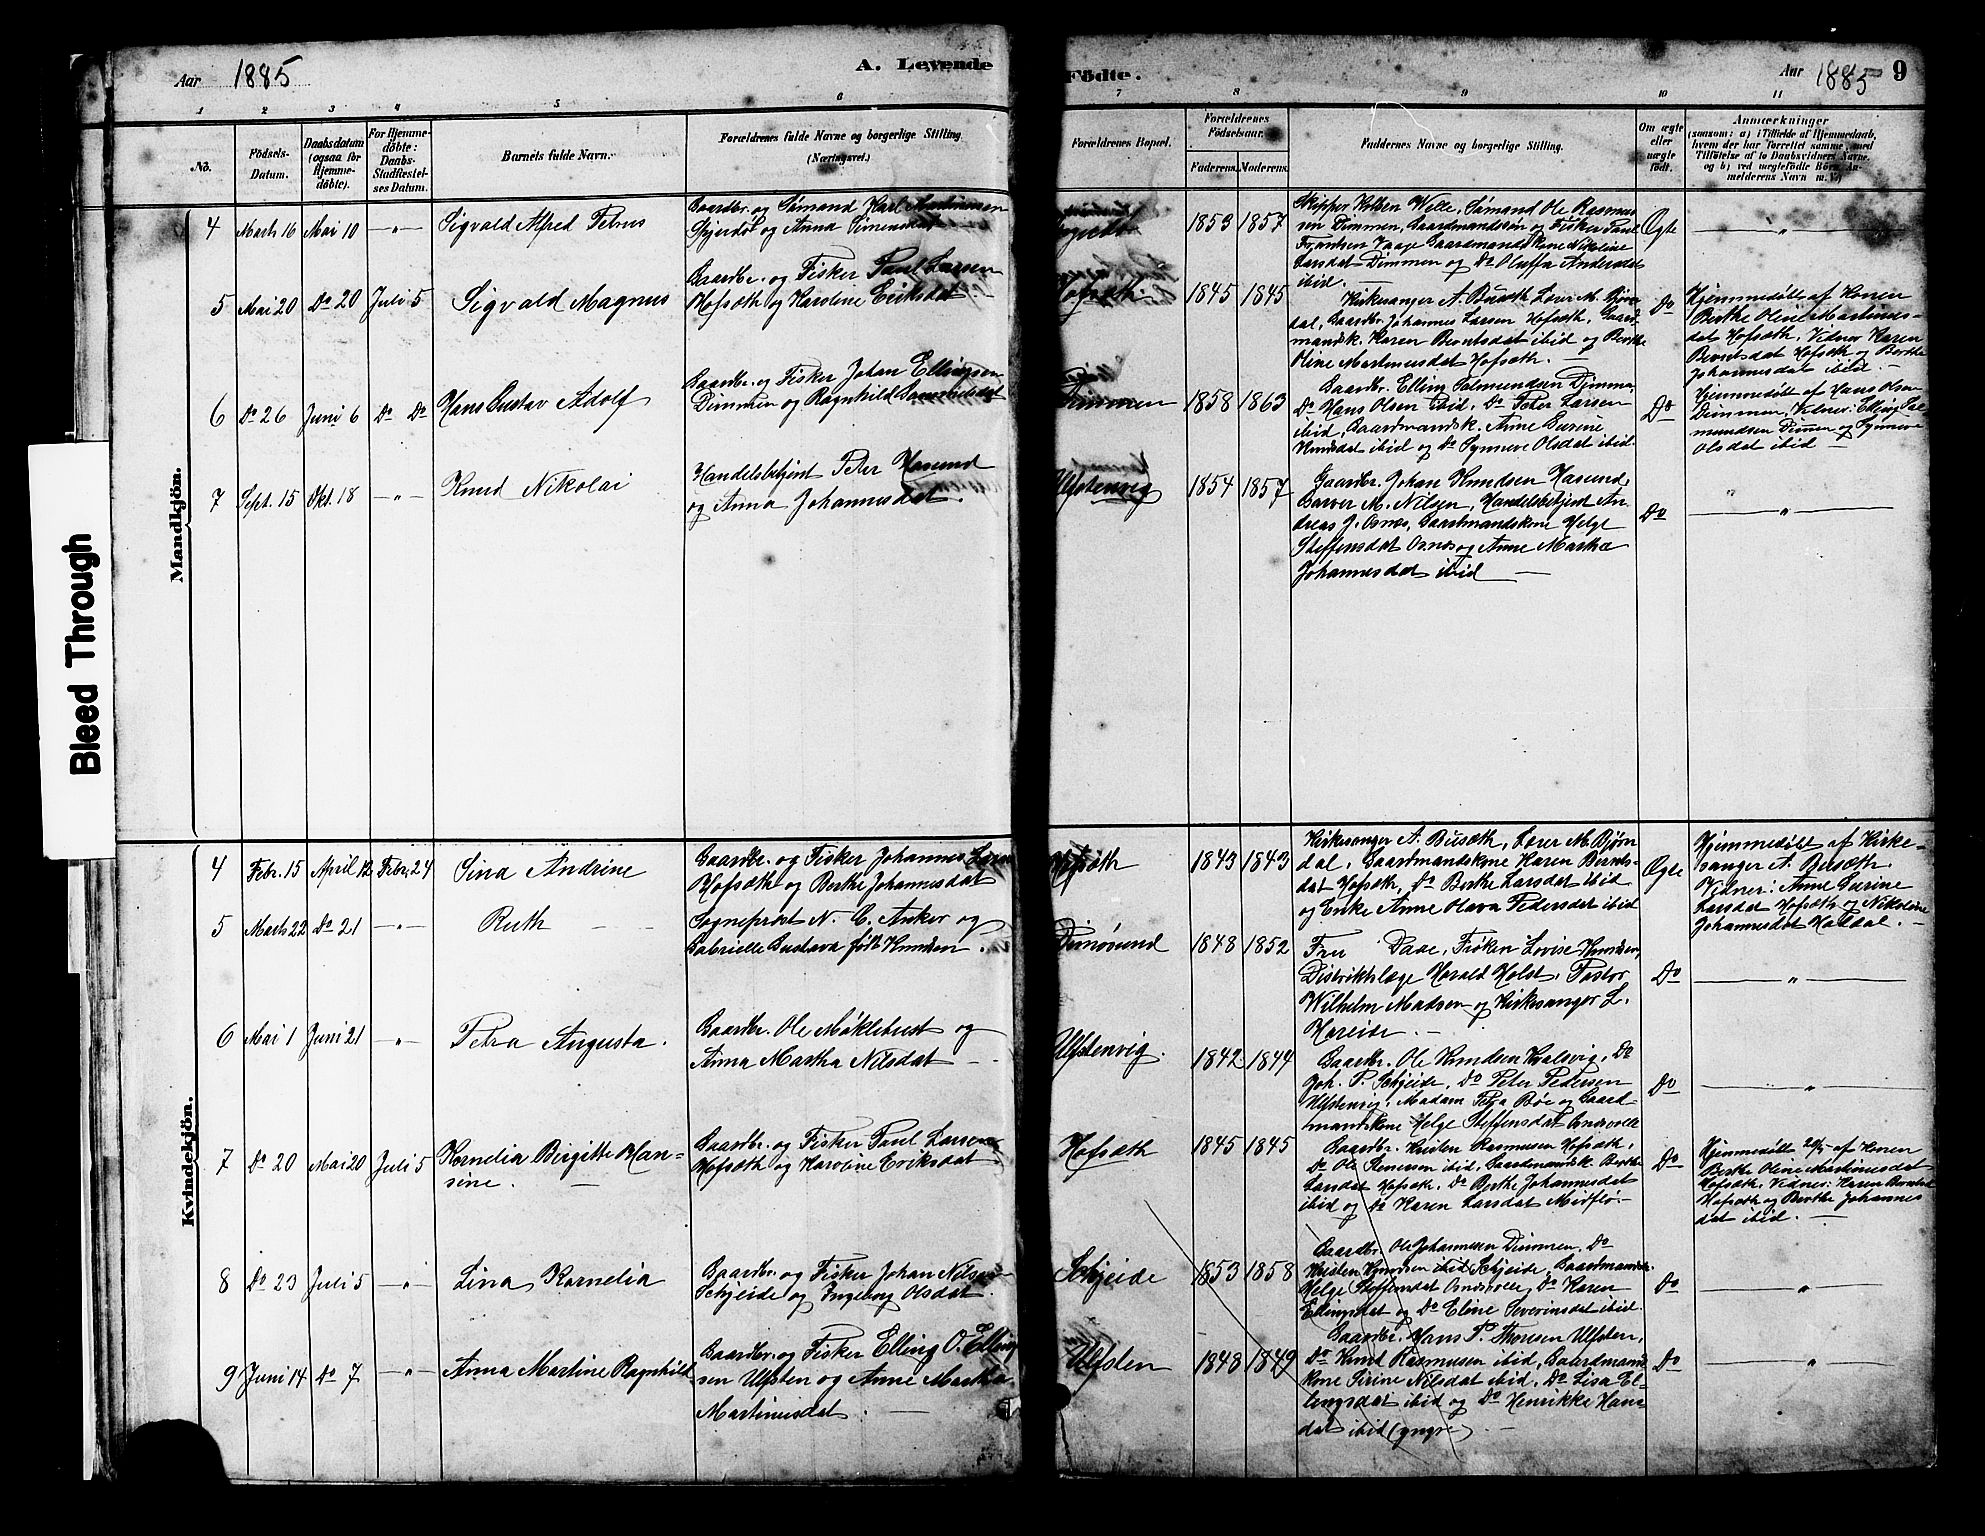 Aar 1885
A. Levende
Födte.
Aar 1885
9
1 2 3 4 5 6 7 8 9 10 11
No.
Födsels-
Datum.
Daabsdatum
(ogsaa for
Hjemme-
döbte).
For Hjemme-
döbte:
Daabs-
Stadfæstel-
ses Datum.
Barnets fulde Navn.
Forældrenes fulde Navne og borgerlige Stilling.
(Næringsvei.)
Forældrenes Bopæl.
Forældrenes
Födselsaar.
Faderens. Moderens.
Faddernes Navne og borgerlige Stilling.
Om ægte
eller
uægte
født.
Anmærkninger
(saasom: a) i Tilfælde af Hjemmedaab,
hvem der har forrettet samme, med
Tilföielse af to Daabsvidners Navne,
og b) ved uægtefödte Börn, An-
melderens Navn m. V.)
Bleed Through
Mandkjön.
4 Marts 16 Mai 10 —"— Sigvald Alfred Petrus
Gaardbr. og Sømand Karl
og Anna Simensdat
1853 1857
Skipper Welle, Sømand Ole Rasmus-
sen Dimmen, Gaardmandssøn og Fisker Paul
Frantsen Vaage Gaardmandskone Nikoline
Larsdat Dimmen og Do Oluffa Andersdat
ibid. —
Ægte
—"—
5 Mai 20 Do 20 Juli 5 Sigvald Magnus
Gaardbr. og Fisker Paul Larsen
Hofsæth og Karoline Eriksdat —
Hofsæth 1845 1845
Kirkesanger A. Busæth, Lærer M. Bjørn-
dal, Gaardbr. Johannes Larsen Hofsæth, Gaard-
mandsk. Karen Berntsdat ibid og Berthe
Oline Martinusdat Hofsæth. —
Do
Hjemmedøbt af Konen
Berthe Oline Martinus-
dat Hofsæth, Vidner Karen
Berntsdat Hofsæth og Berthe
Johannesdat ibid. —
6 Do 26 Juni 6 Do Do Hans Gustav Adolf
Gaardbr. og Fisker Johan Ellingsen
Dimmen og Ragnhild
Dimmen 1858 1863
Gaardbr. Elling Salmundsen Dimma
Do Hans Olsen ibid, Do Peter Larsen
ibid, Gaardmandsk. Anne Gurine
Knudsdat ibid og Do Synneve Olsdat ibid
Do
Hjemmedøbt af Hans Olsen
Dimmen, Vidner: Elling Sal-
mundsen Dimmen og Synneve
Olsdat ibid —
7 Sept. 15 Okt. 18 —"— Knud Nikolai
Handelsbetjent Peter Hasund
og Anna Johannesdat.
Ulfstenvig 1854 1857
Gaardbr. Johan Knudsen Hasund,
Garver M. Nilsen, Handelsbetjent An-
dreas J. Osnes, Gaardmandskone Helge
Steffensdat Osnes og Anne Martha
Johannesdat ibid —
Do
—"—
Kvindekjön.
4 Febr. 15 April 12 Febr. 24 Sina Andrine
Gaardbr. og Fisker Johannes Larsen
Hofsæth og Berthe Johannesdat
Hofsæth 1843 1843
Kirkesanger A. Busæth, Lærer M. Bjørn-
dal, Gaardmandskone Karen Bernts-
dat Hofsæth, Do Berthe Larsdat ibid
og Enke Anne Olava Pedersdat ibid
Ægte
Hjemmedøbt af Kirke-
sanger A. Busæth.
Vidner: Anne Gurine
Larsdat Hofsæth og Nikoline
Johannesdat Haddal. —
5 Marts 22 Do 21 —"— Ruth — —
Sogneprest N. C. Anker og
Gabrielle Gustava født Knudsen.
Dimøsund 1848 1852
Fru Daae, Frøken Lovise Knudsen,
Distriktslæge Harald Holst, Pastor
Wilhelm Madsen og Kirkesanger L.
Hareide. —
Do
—"—
6 Mai 1 Juni 21 —"— Petra Augusta.
Gaardbr. Ole Møklebust og
Anna Martha Nilsdat — —
Ulfstenvig. 1842 1844
Gaardbr. Ole Knudsen Kvalsvig, Do
Joh. P. Schjeide, Do Peter Pedersen
Ulfstenvig, Madam Petra Bøe og Gaard-
mandskone Helge Steffensdat Osnesvolle
Do
—"—
7 Do 20 Mai 20 Juli 5 Kornelia Birgitte Han-
sine. —
Gaardbr. og Fisker Paul Larsen
Hofsæth og Karoline Eriksdat.
Hofsæth 1845 1845
Gaardbr. Kristen Rasmusen Hofsæth,
Do Ole Remersen ibid, Gaardmandsk. Berthe
Larsdat Hofsæth, Do Berthe Johannesdat
ibid og Do Karen Larsdat Midflø. —
Do
Hjemmedøbt 20/5 af Konen
Berthe Oline Martinusdat
Hofsæth, Vidner: Karen Berntsd
Hofsæth og Berthe Johannes
dat ibid. —
8 Do 23 Juli 5 —"— Lina Kornelia
Gaardbr. og Fisker Johan Nilsen
Schjeide og Ingeborg Olsdat.
Schjeide 1853 1858
Gaardbr. Ole Johannesen Dimmen, Do
Kristen Knudsen ibid Schjeide, Gaardmandsk.
Helge Steffensdat Osnesvolle, Do Karen
Ellingsdat og Do Eline Severinsdat ibid.
Do
—"—
9 Juni 14 Do 7 —"— Anna Martine Ragnhild
Gaardbr. og Fisker Elling O. Elling-
sen Ulfsten og Anne Martha
Martinusdat. —
Ulfsten 1848 1849
Gaardbr. Hans P. Thoresen Ulfsten,
Do Knut Rasmusen ibid, Gaardmands-
kone Sirine Nilsdat ibid, Do Lisa El-
lingsdat ibid og Do Henrikke Hans-
dat ibid (yngre). —
Do
—"—